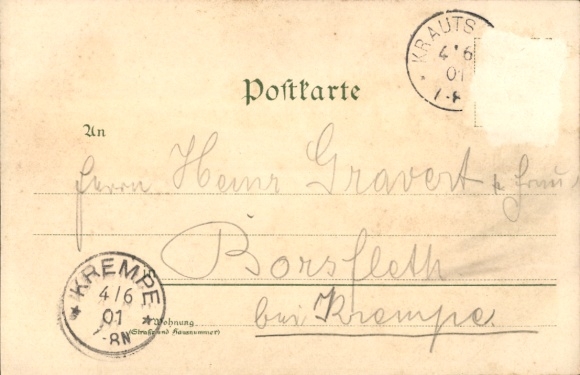 KRAUTS
4/6
01
7-8
Postkarte
An
Herrn Heinr Gravert u Frau
Borsfleth
KREMPE
4/6
01
7-8N
Wohnung
(Straße und Hausnummer)
bei Krempe